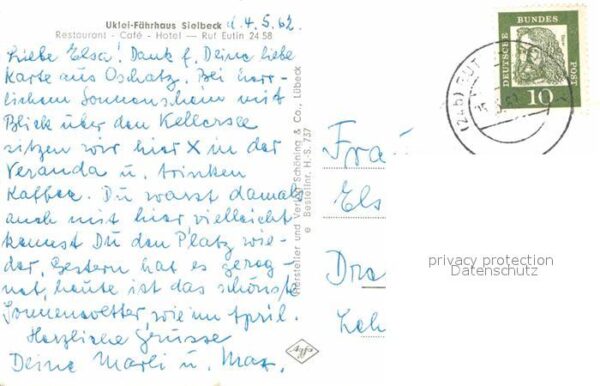 Uklei-Fährhaus Sielbeck
Restaurant - Café - Hotel — Ruf Eutin 24 58
d. 4. 5. 62.
Liebe Elsa! Dank f. Deine liebe
Karte aus Oschatz. Bei herr-
lichem Sonnenschein mit
Blick über den Kellersee
sitzen wir hier X in der
Veranda u. trinken
Kaffee. Du warst damals
auch mit hier vielleicht
kennst Du den Platz wie-
der. Gestern hat es gereg-
net, heute ist das schönste
Sonnenwetter, wie im April.
Herzliche Grüsse
Deine Marli u. Max.
Hersteller und Verlag Schöning & Co., Lübeck
Bestellnr. H. S. 737
Frau
Els
Dra
Leh
DEUTSCHE BUNDES POST
10
(24b) EUT
privacy protection
Datenschutz